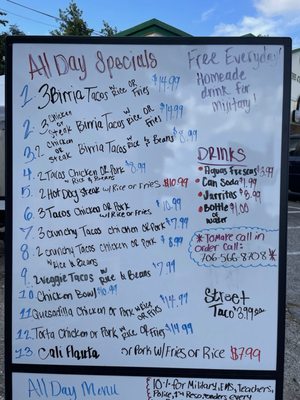 All Day Specials
1. 3 Birria Tacos w/ Rice or Fries $14.99
2. 2 Chicken or Steak Birria Tacos w/ Rice or Fries $14.99
3. 2 Chicken or Steak Birria Tacos w/ Rice & Beans
4. 2 Tacos Chicken or Pork w/ Rice & Beans $8.99
5. 2 Hot Dog Steak w/ Rice or Fries $10.99
6. 3 Tacos Chicken or Pork w/ Rice or Fries $10.99
7. 3 crunchy Tacos chicken or Pork $7.99
8. 2 crunchy Tacos chicken or Pork w/ Rice & Beans $8.99
9. 2 Veggie Tacos w/ Rice & Beans $7.99
10. Chicken Bowl $10.99
11. Quesadilla Chicken or Pork w/ Rice or Fries $14.99
12. Torta Chicken or Pork w/ Rice or Fries $14.99
13 Cali or Pork w/ Fries or Rice $7.99
Free Everyday!
Homeade
drink for
Military!
DRINKS
Aguas Frescas $3.99
Can Soda $1.99
Jarritos $3.99
Bottle of water $1.00
*To make call in
order Call:
706-566-8708*
Street
Taco $2.99 ea.
All Day Menu
10% for Military, EMS, Teachers,
Police, 1st Responders every